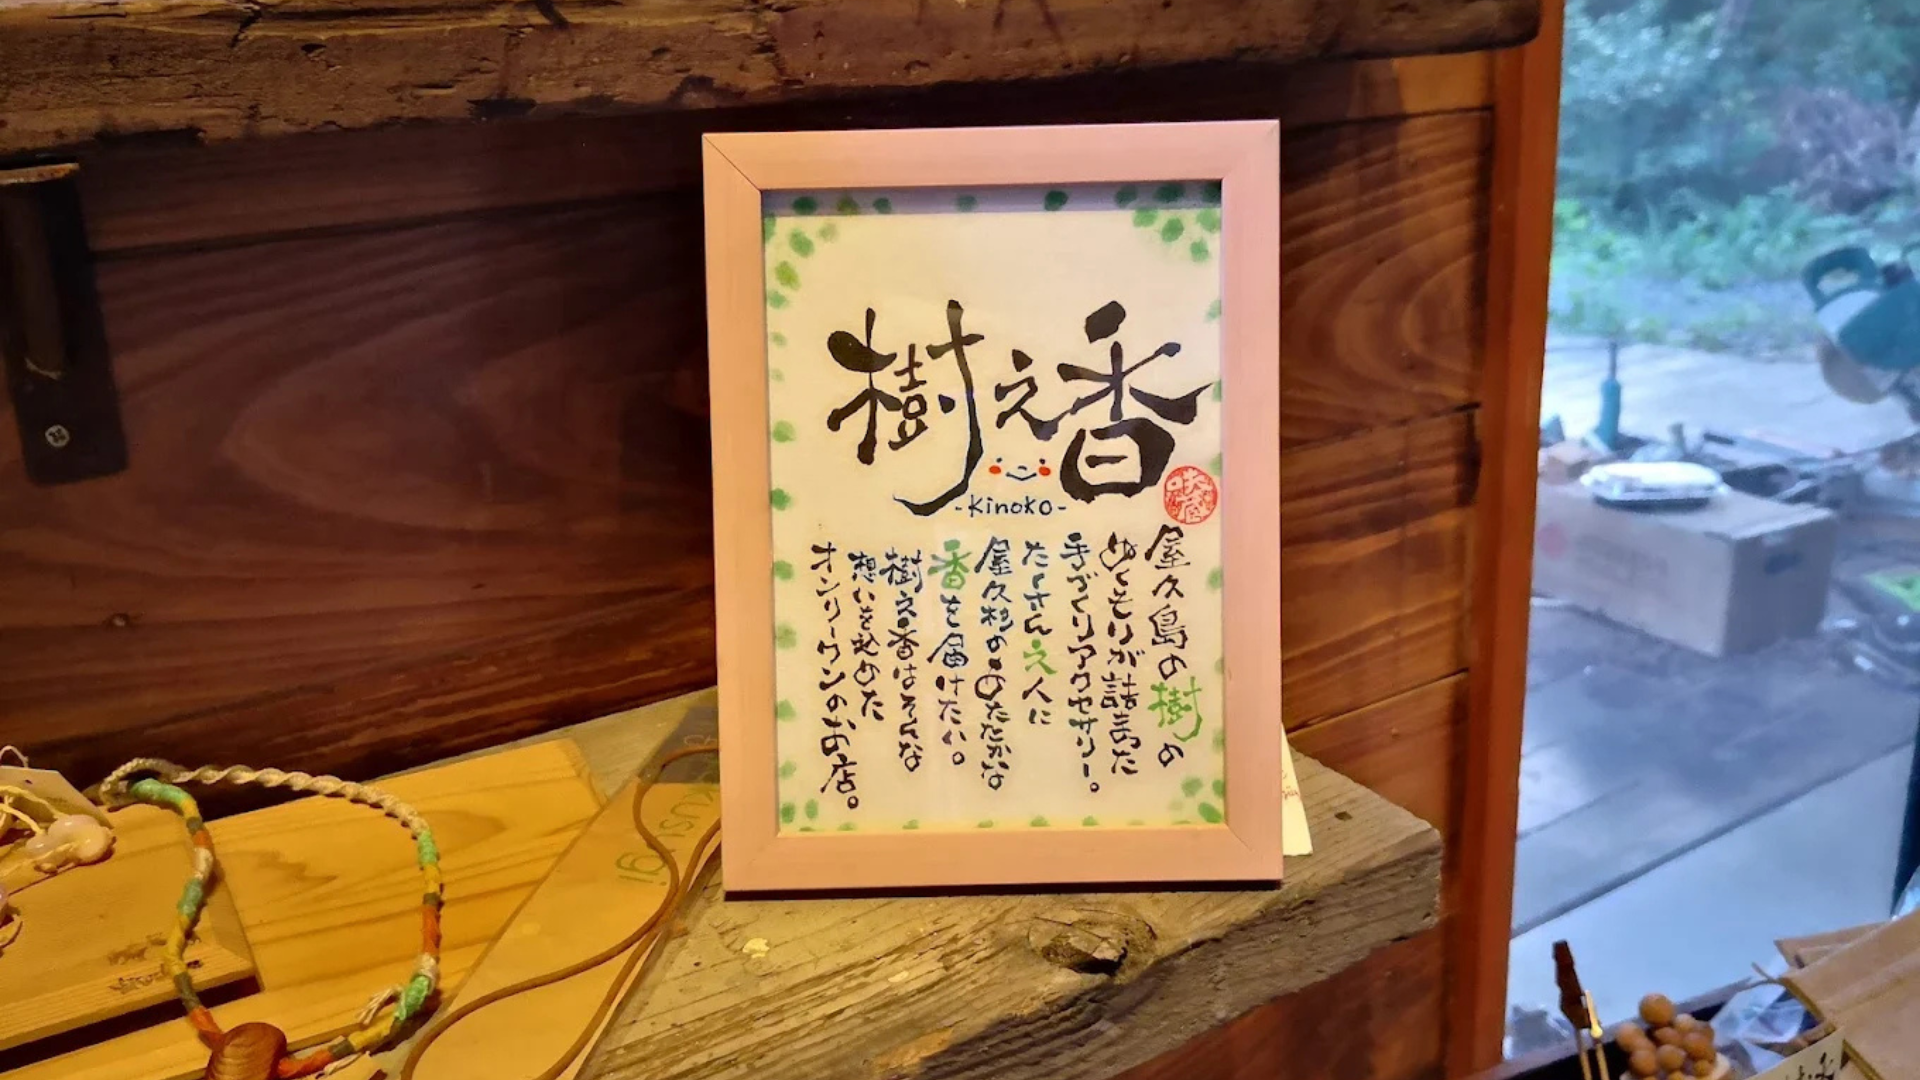 樹え香
-Kinoko-
屋久島の樹の
ぬくもりが詰まった
手づくりアクセサリー。
たくさんえ人に
屋久杉のあたたかな
香を届けたい。
樹え香はそんな
想いを込めた
オンリーワンのお店。